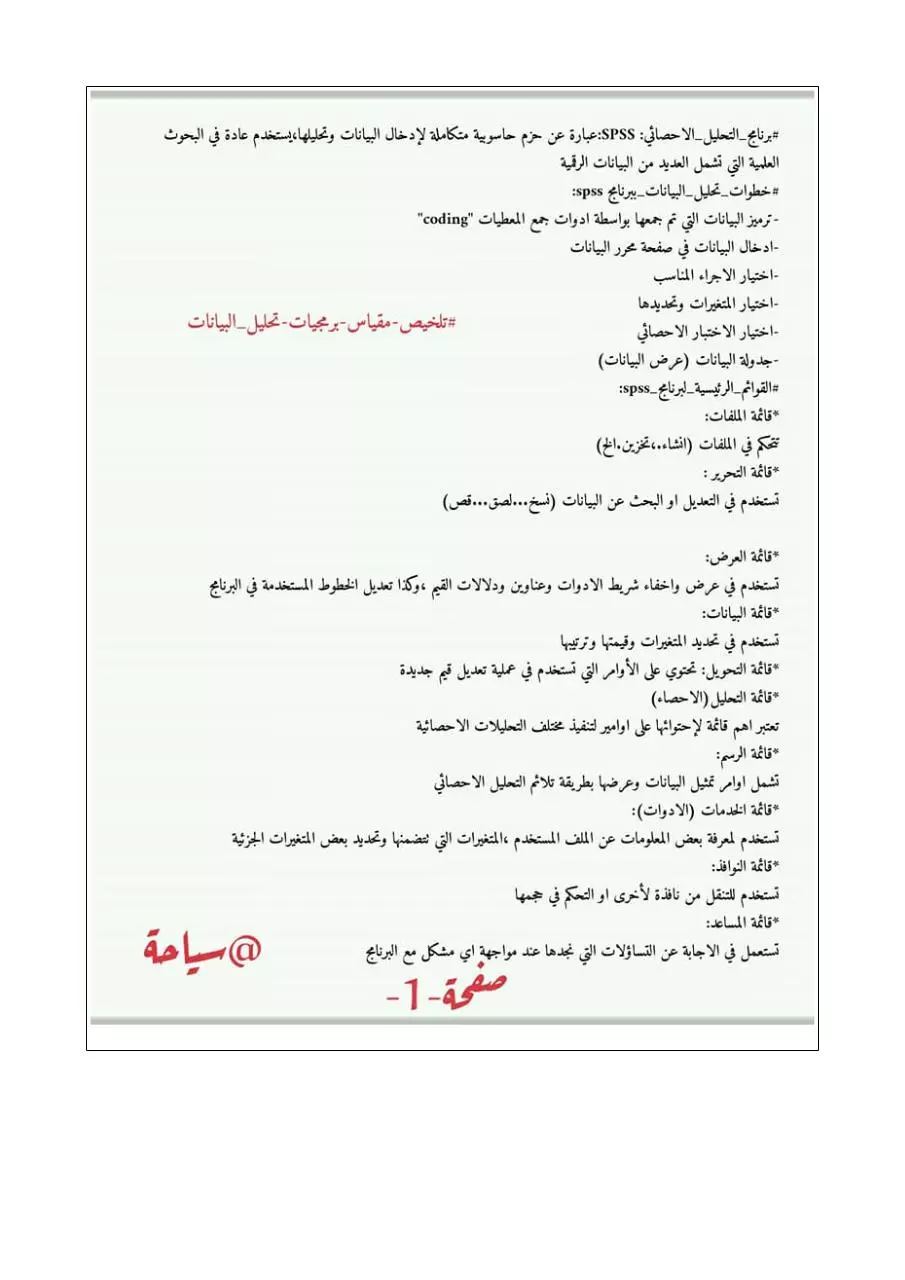 #برنامج_التحليل_الاحصائي: SPSS:عبارة عن حزم حاسوبية متكاملة لإدخال البيانات وتحليلها،يستخدم عادة في البحوث
العلمية التي تشمل العديد من البيانات الرقمية
#خطوات_تحليل_البيانات_ببرنامج spss:
-ترميز البيانات التي تم جمعها بواسطة ادوات جمع المعطيات "coding"
-ادخال البيانات في صفحة محرر البيانات
-اختيار الاجراء المناسب
-اختيار المتغيرات وتحديدها
#تلخيص-مقياس-برمجيات-تحليل_البيانات
-اختيار الاختبار الاحصائي
-جدولة البيانات (عرض البيانات)
#القوائم_الرئيسية_لبرنامج_spss:
*قائمة الملفات:
تتحكم في الملفات (انشاء.،تخزين.الخ)
*قائمة التحرير :
تستخدم في التعديل او البحث عن البيانات (نسخ...لصق...قص)
*قائمة العرض:
تستخدم في عرض واخفاء شريط الادوات وعناوين ودلالات القيم ،وكذا تعديل الخطوط المستخدمة في البرنامج
*قائمة البيانات:
تستخدم في تحديد المتغيرات وقيمتها وترتيبها
*قائمة التحويل: تحتوي على الأوامر التي تستخدم في عملية تعديل قيم جديدة
*قائمة التحليل(الاحصاء)
تعتبر اهم قائمة لإحتوائها على اوامير لتنفيذ مختلف التحليلات الاحصائية
*قائمة الرسم:
تشمل اوامر تمثيل البيانات وعرضها بطريقة تلائم التحليل الاحصائي
*قائمة الخدمات (الادوات):
تستخدم لمعرفة بعض المعلومات عن الملف المستخدم ،المتغيرات التي تتضمنها وتحديد بعض المتغيرات الجزئية
*قائمة النوافذ:
تستخدم للتنقل من نافذة لأخرى او التحكم في حجمها
*قائمة المساعد:
تستعمل في الاجابة عن التساؤلات التي نجدها عند مواجهة اي مشكل مع البرنامج
@سياحة
صفحة-1-